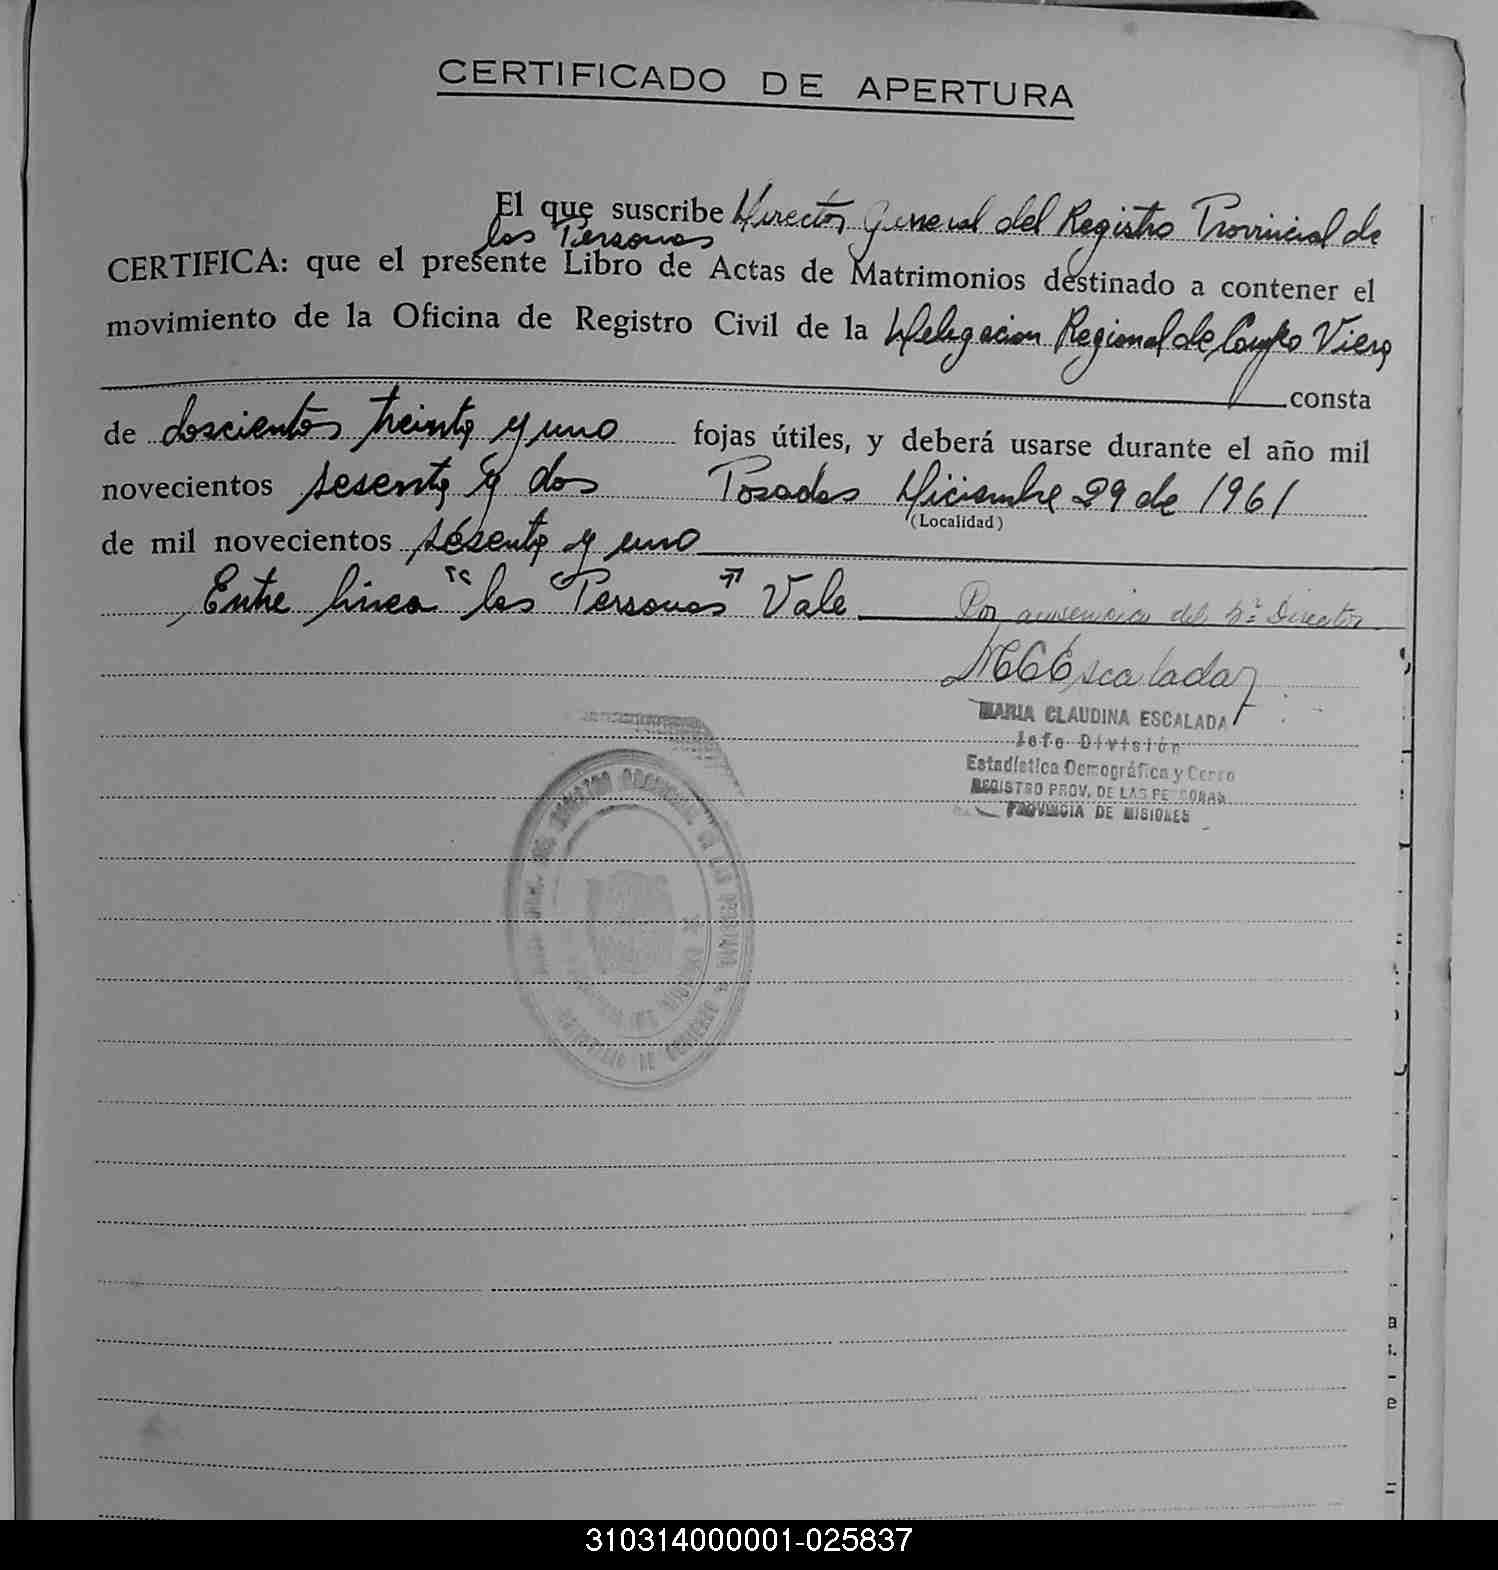 CERTIFICADO DE APERTURA
El que suscribe Director General del Registro Provincial de
las Personas
CERTIFICA: que el presente Libro de Actas de Matrimonios destinado a contener el
movimiento de la Oficina de Registro Civil de la Delegacion Regional de Campo Viera
consta
de doscientos treinta y uno fojas útiles, y deberá usarse durante el año mil
novecientos sesenta y dos Posadas Diciembre 29 de 1961
(Localidad)
de mil novecientos sesenta y uno
Entre linea "las Personas" Vale
Por ausencia del Sr. Director
MCEscalada
MARIA CLAUDINA ESCALADA
Jefe División
Estadística Demográfica y Censo
REGISTRO PROV. DE LAS PERSONAS
PROVINCIA DE MISIONES
REGISTRO PROVINCIAL DE LAS PERSONAS
MINISTERIO DE GOBIERNO
310314000001-025837